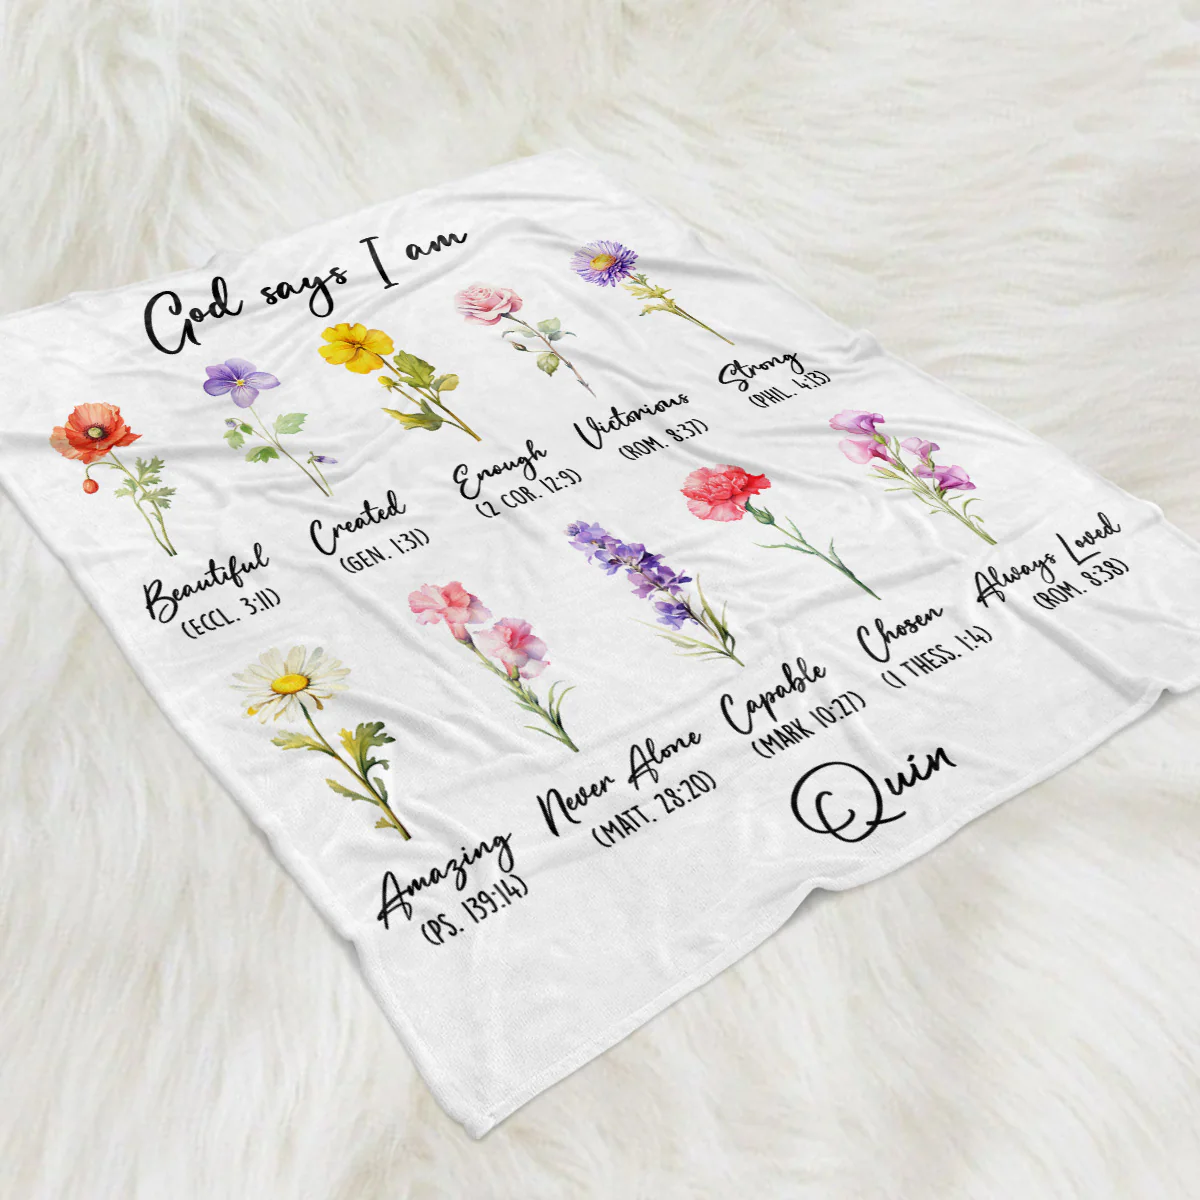 God says I am
Beautiful
(ECCL. 3:11)
Created
(GEN. 1:31)
Enough
(2 COR. 12:9)
Victorious
(ROM. 8:37)
Strong
(PHIL. 4:13)
Amazing
(PS. 139:14)
Never Alone
(MATT. 28:20)
Capable
(MARK 10:27)
Chosen
(1 THESS. 1:4)
Always Loved
(ROM. 8:38)
Quin